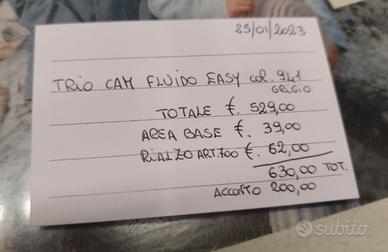 25/01/2023
TRIO CAM FLUIDO EASY COL. 941
GRIGIO
TOTALE €. 529,00
AREA BASE €. 39,00
RIALZO ART700 €. 62,00
630,00 TOT.
ACCONTO 200,00
subito